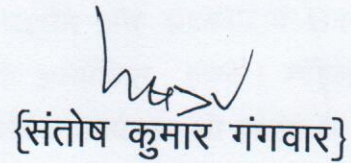 {संतोष कुमार गंगवार}